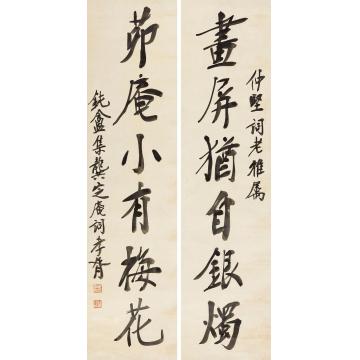 仲堅詞老雅属
畫屏猶自銀燭
茆庵小有梅花
鈍盦集龔定庵詞孝胥